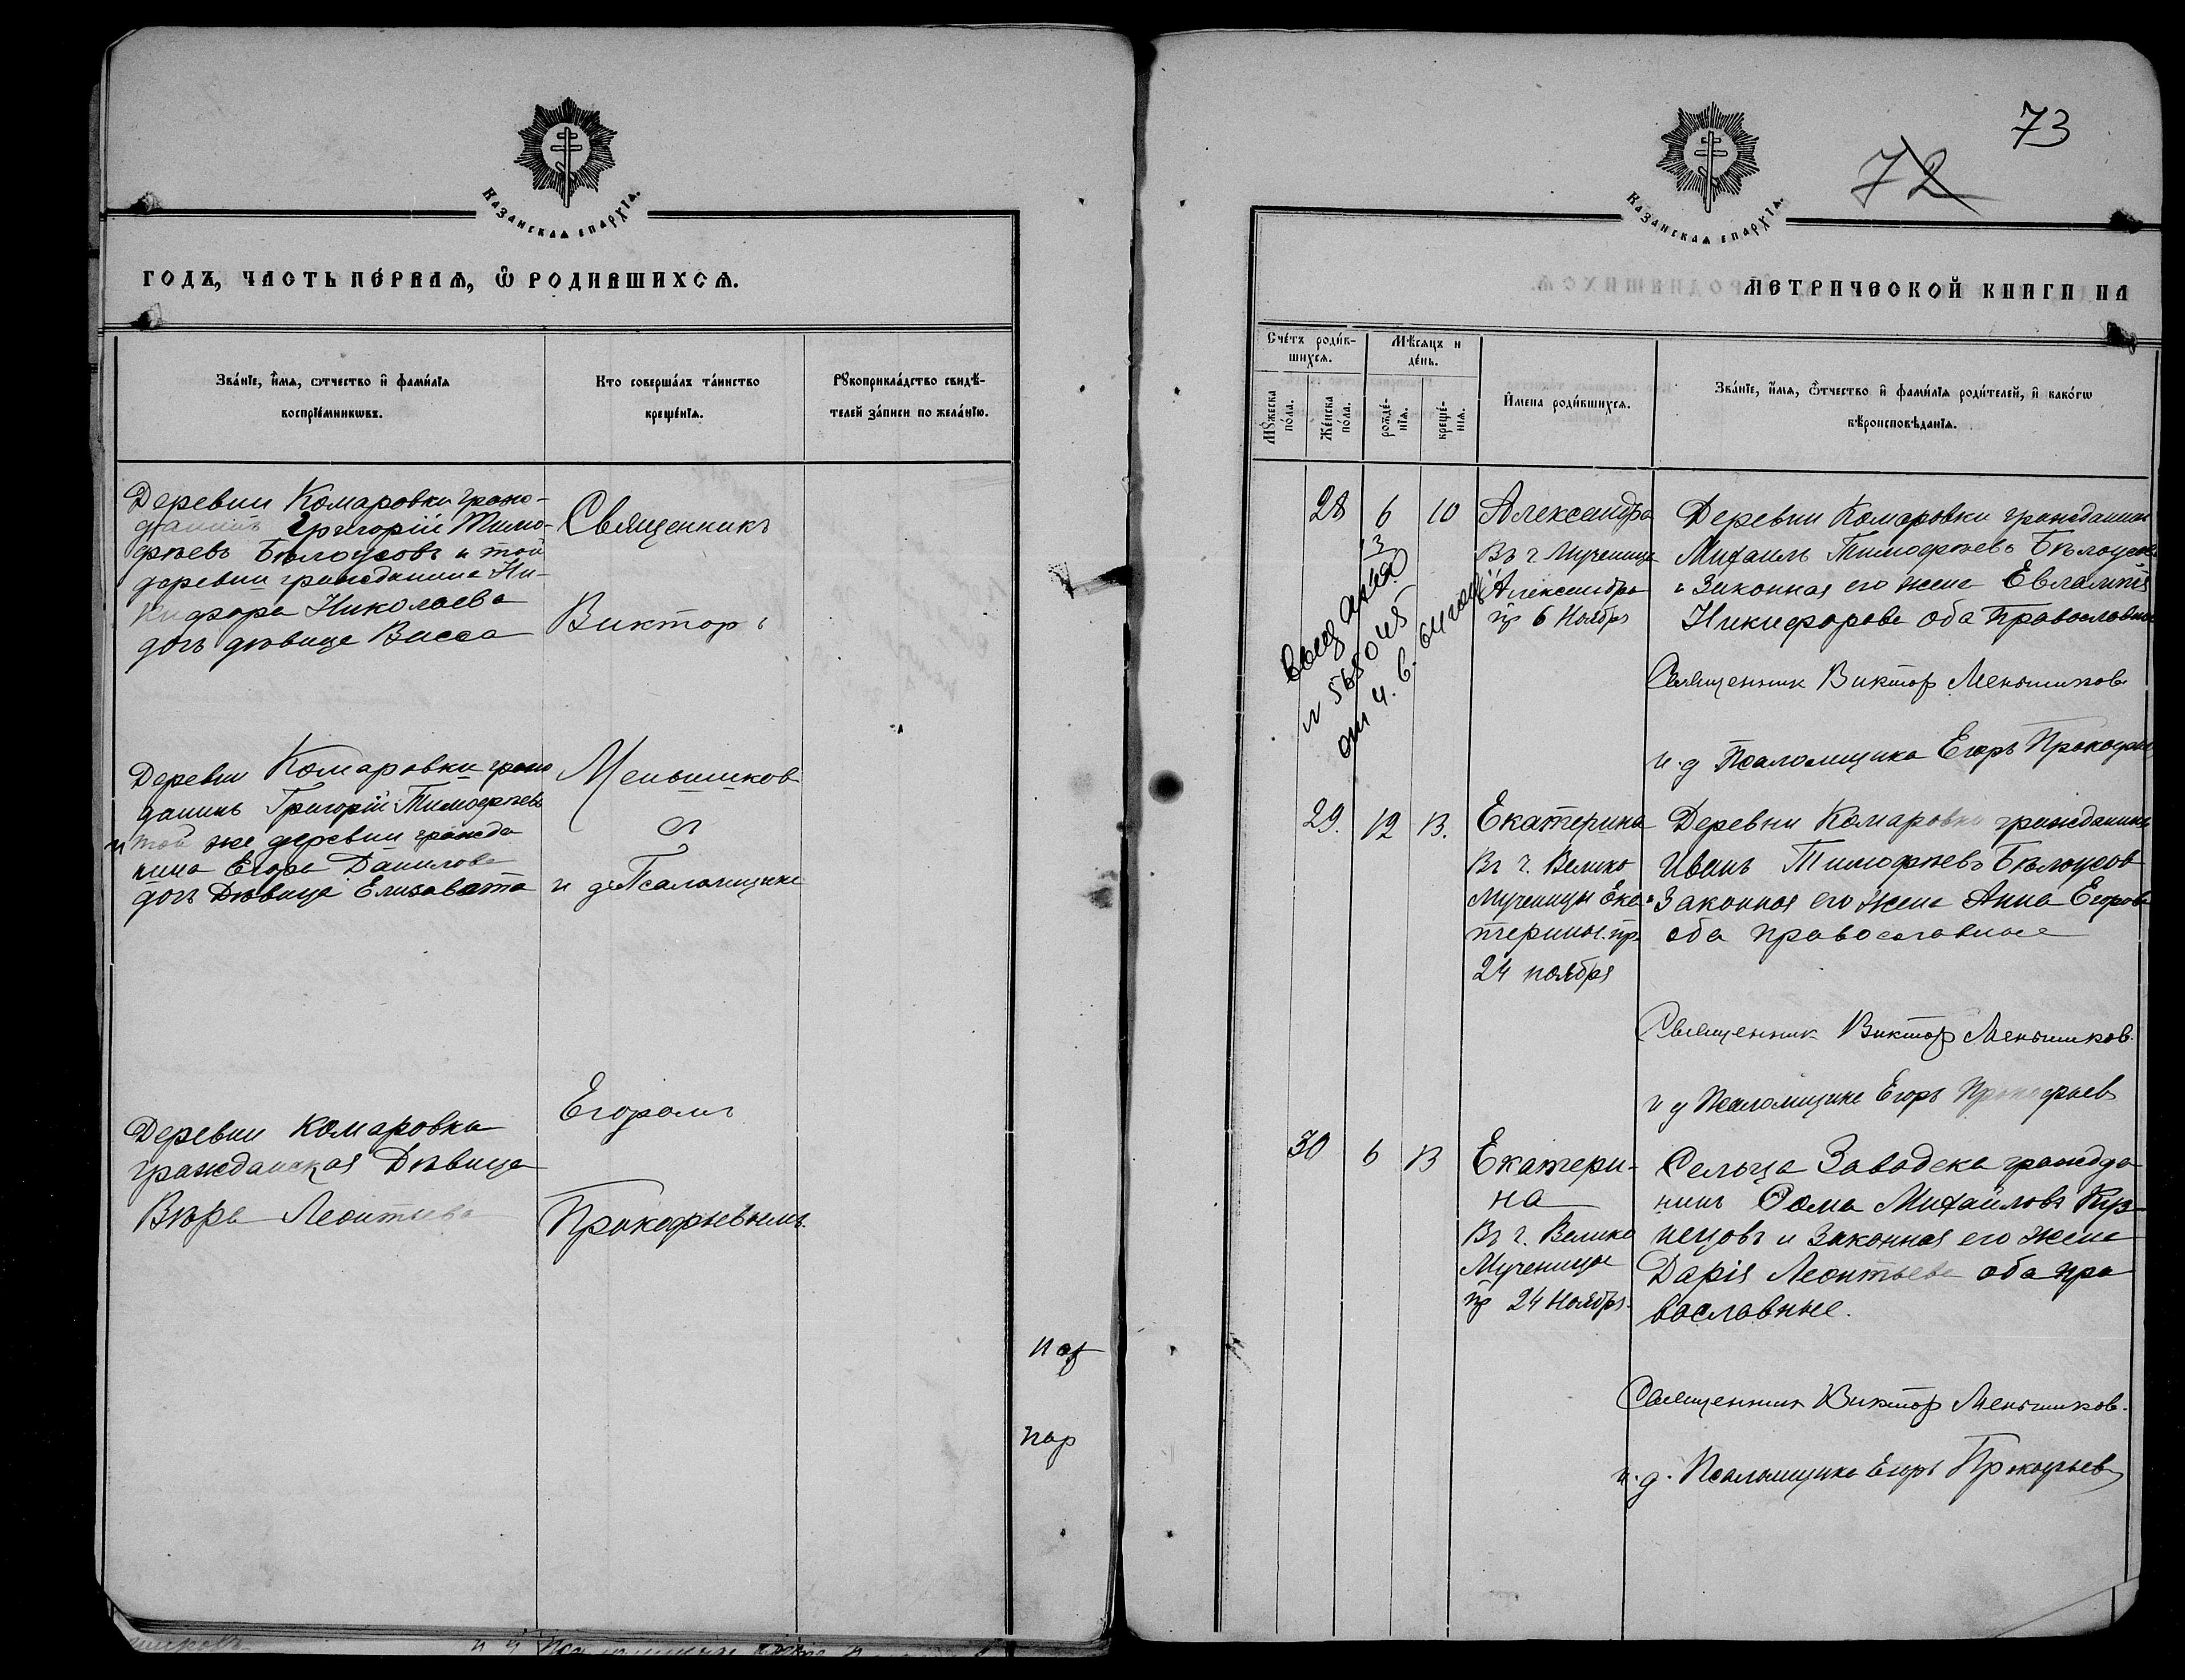 Казанская епархїѧ.
годъ, часть пе́рваѧ, ѡ҃ родившихсѧ.
Зва́нїе, и҆́мѧ, ѻтчество и҆ фами́лїѧ
воспрїе́мникѡвъ.
Кто соверша́лъ та́инство
креще́нїѧ.
Рꙋкоприкла́дство свидѣ́-
телей за́писи по жела́нїю.
Деревни Комаровки граж-
данинъ Григорій Тимо-
фѣевъ Бѣлоусовъ и той
деревни гражданина Ни-
кифора Николаева
дочь дѣвица Васса
Деревни Комаровки граж
данинъ Григорій Тимофѣевъ
и той же деревни гражда
нина Егора Данилова
дочь Дѣвица Елизавета
Деревни Комаровки
гражданская Дѣвица
Вѣра Леонтьева
Священникъ
Викторъ
Меньшиков
съ
и д Псаломщика
Егоромъ
Прокофьевымъ
73
72
Казанская епархїѧ.
метрической книги на
Сче́тъ роди́в-
шихсѧ.
Мꙋ́жеска
по́ла.
Же́нска
по́ла.
Мѣ́сѧцъ и
де́нь.
рожде́-
нїѧ.
креще́-
нїѧ.
И҆мена роди́вшихсѧ.
Зва́нїе, и҆́мѧ, ѻ҆́тчество и҆ фами́лїѧ роди́телей, и҆ како́гѡ
вѣроисповѣ́данїѧ.
28 6 10 Александра
Въ ч Мученицы
Александры
пр 6 Ноября
Деревни Комаровки гражданин
Михаилъ Тимофѣевъ Бѣлоусовъ
и Законная его жена Евлампія
Никифорова оба православные
Священник Виктор Меньшиков
и. д Псаломщика Егоръ Прокофьев
29. 12 13. Екатерина
Въ ч. Велико
Мученицы Ека
терины. пр
24 ноября
Деревни Комаровки гражданинъ
Иванъ Тимофѣевъ Бѣлоусов
и Законная его жена Анна Егорова
оба православные
Священник Виктор Меньшиков.
и д Псаломщика Егоръ Прокофьев
30 6 13 Екатери-
на
Въ ч. Велико
Мученицы
пр 24 Ноября.
Сельца Заводска гражда-
нинъ Фома Михайловъ Куз-
нецовъ и Законная его жена
Дарія Леонтьева оба пра
вославные.
Священник Виктор Меньшиков.
и. д. Псаломщика Егоръ Прокофьев